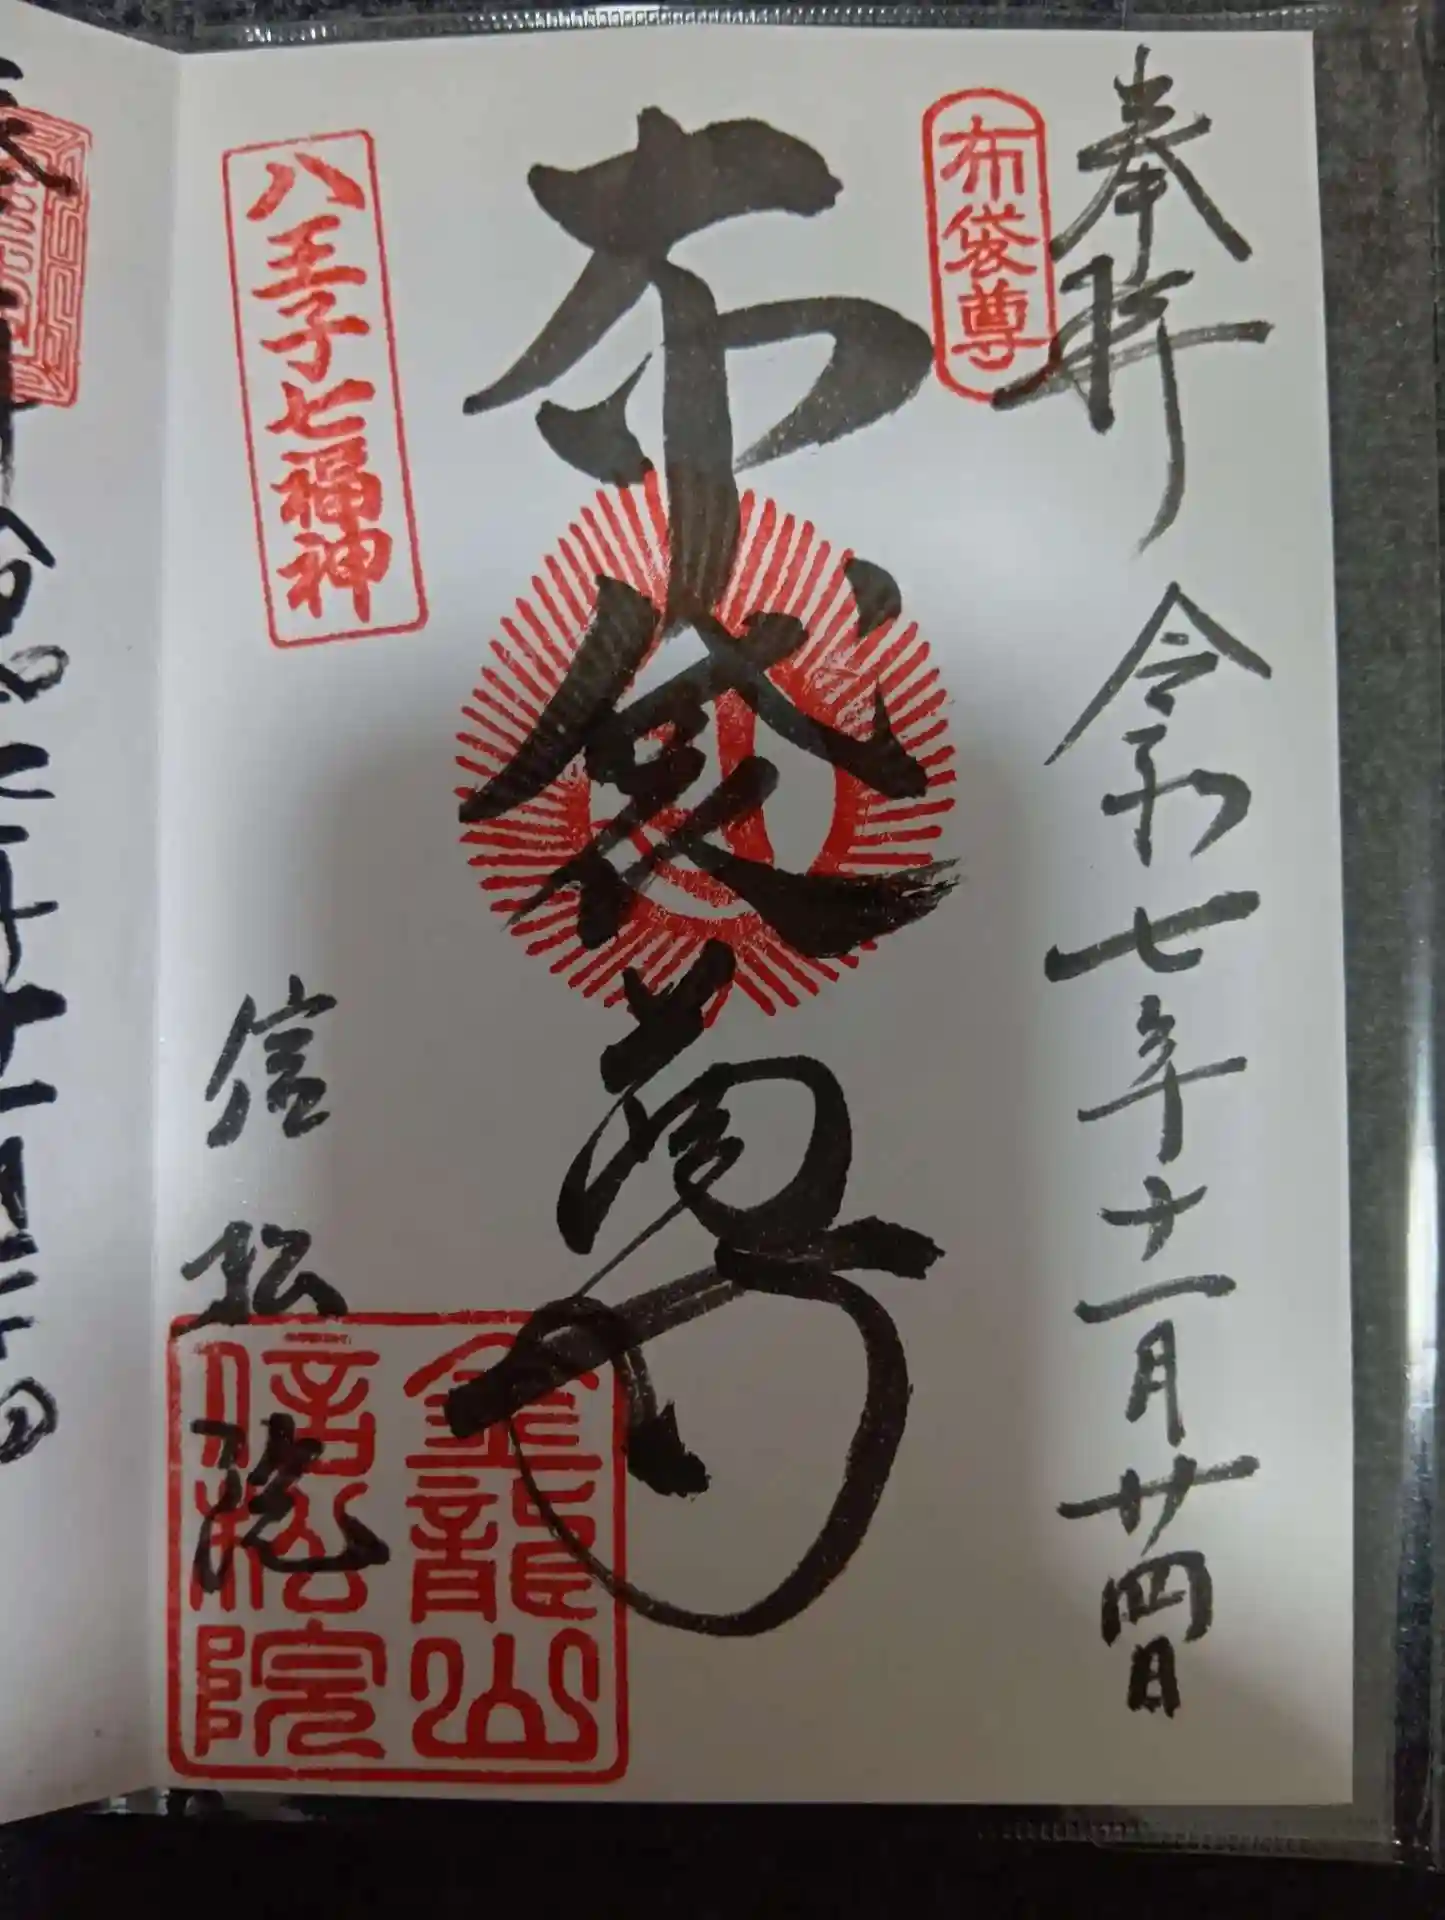 奉拝 令和七年十一月廿四日
布袋尊
布袋尊
八王子七福神
信松院
金龍山
信松院